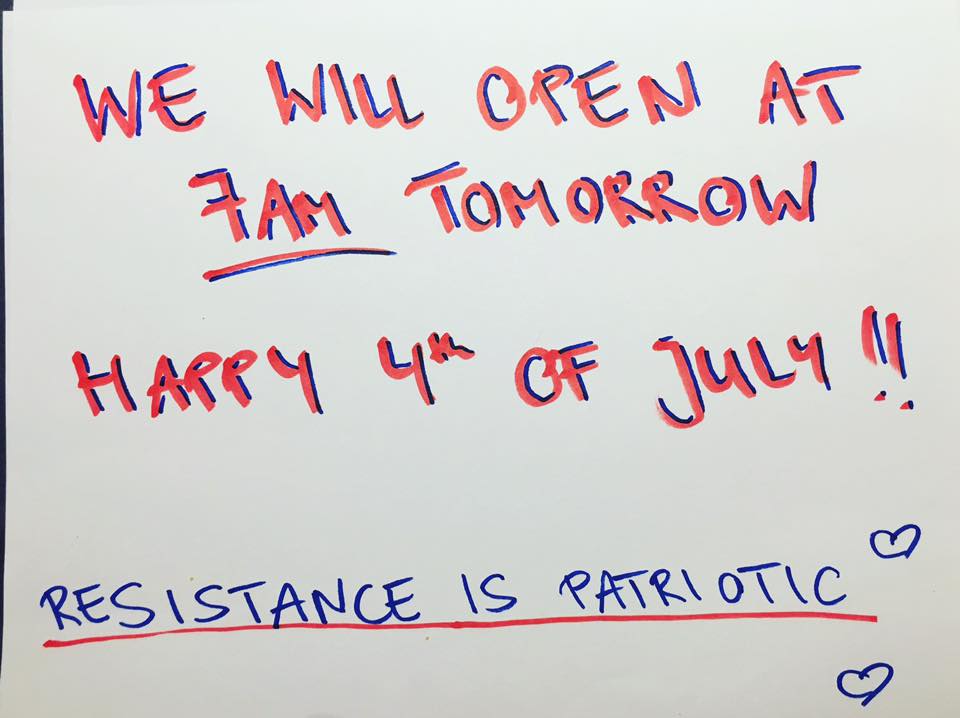 WE WILL OPEN AT
7AM TOMORROW
HAPPY 4th OF JULY !!
RESISTANCE IS PATRIOTIC